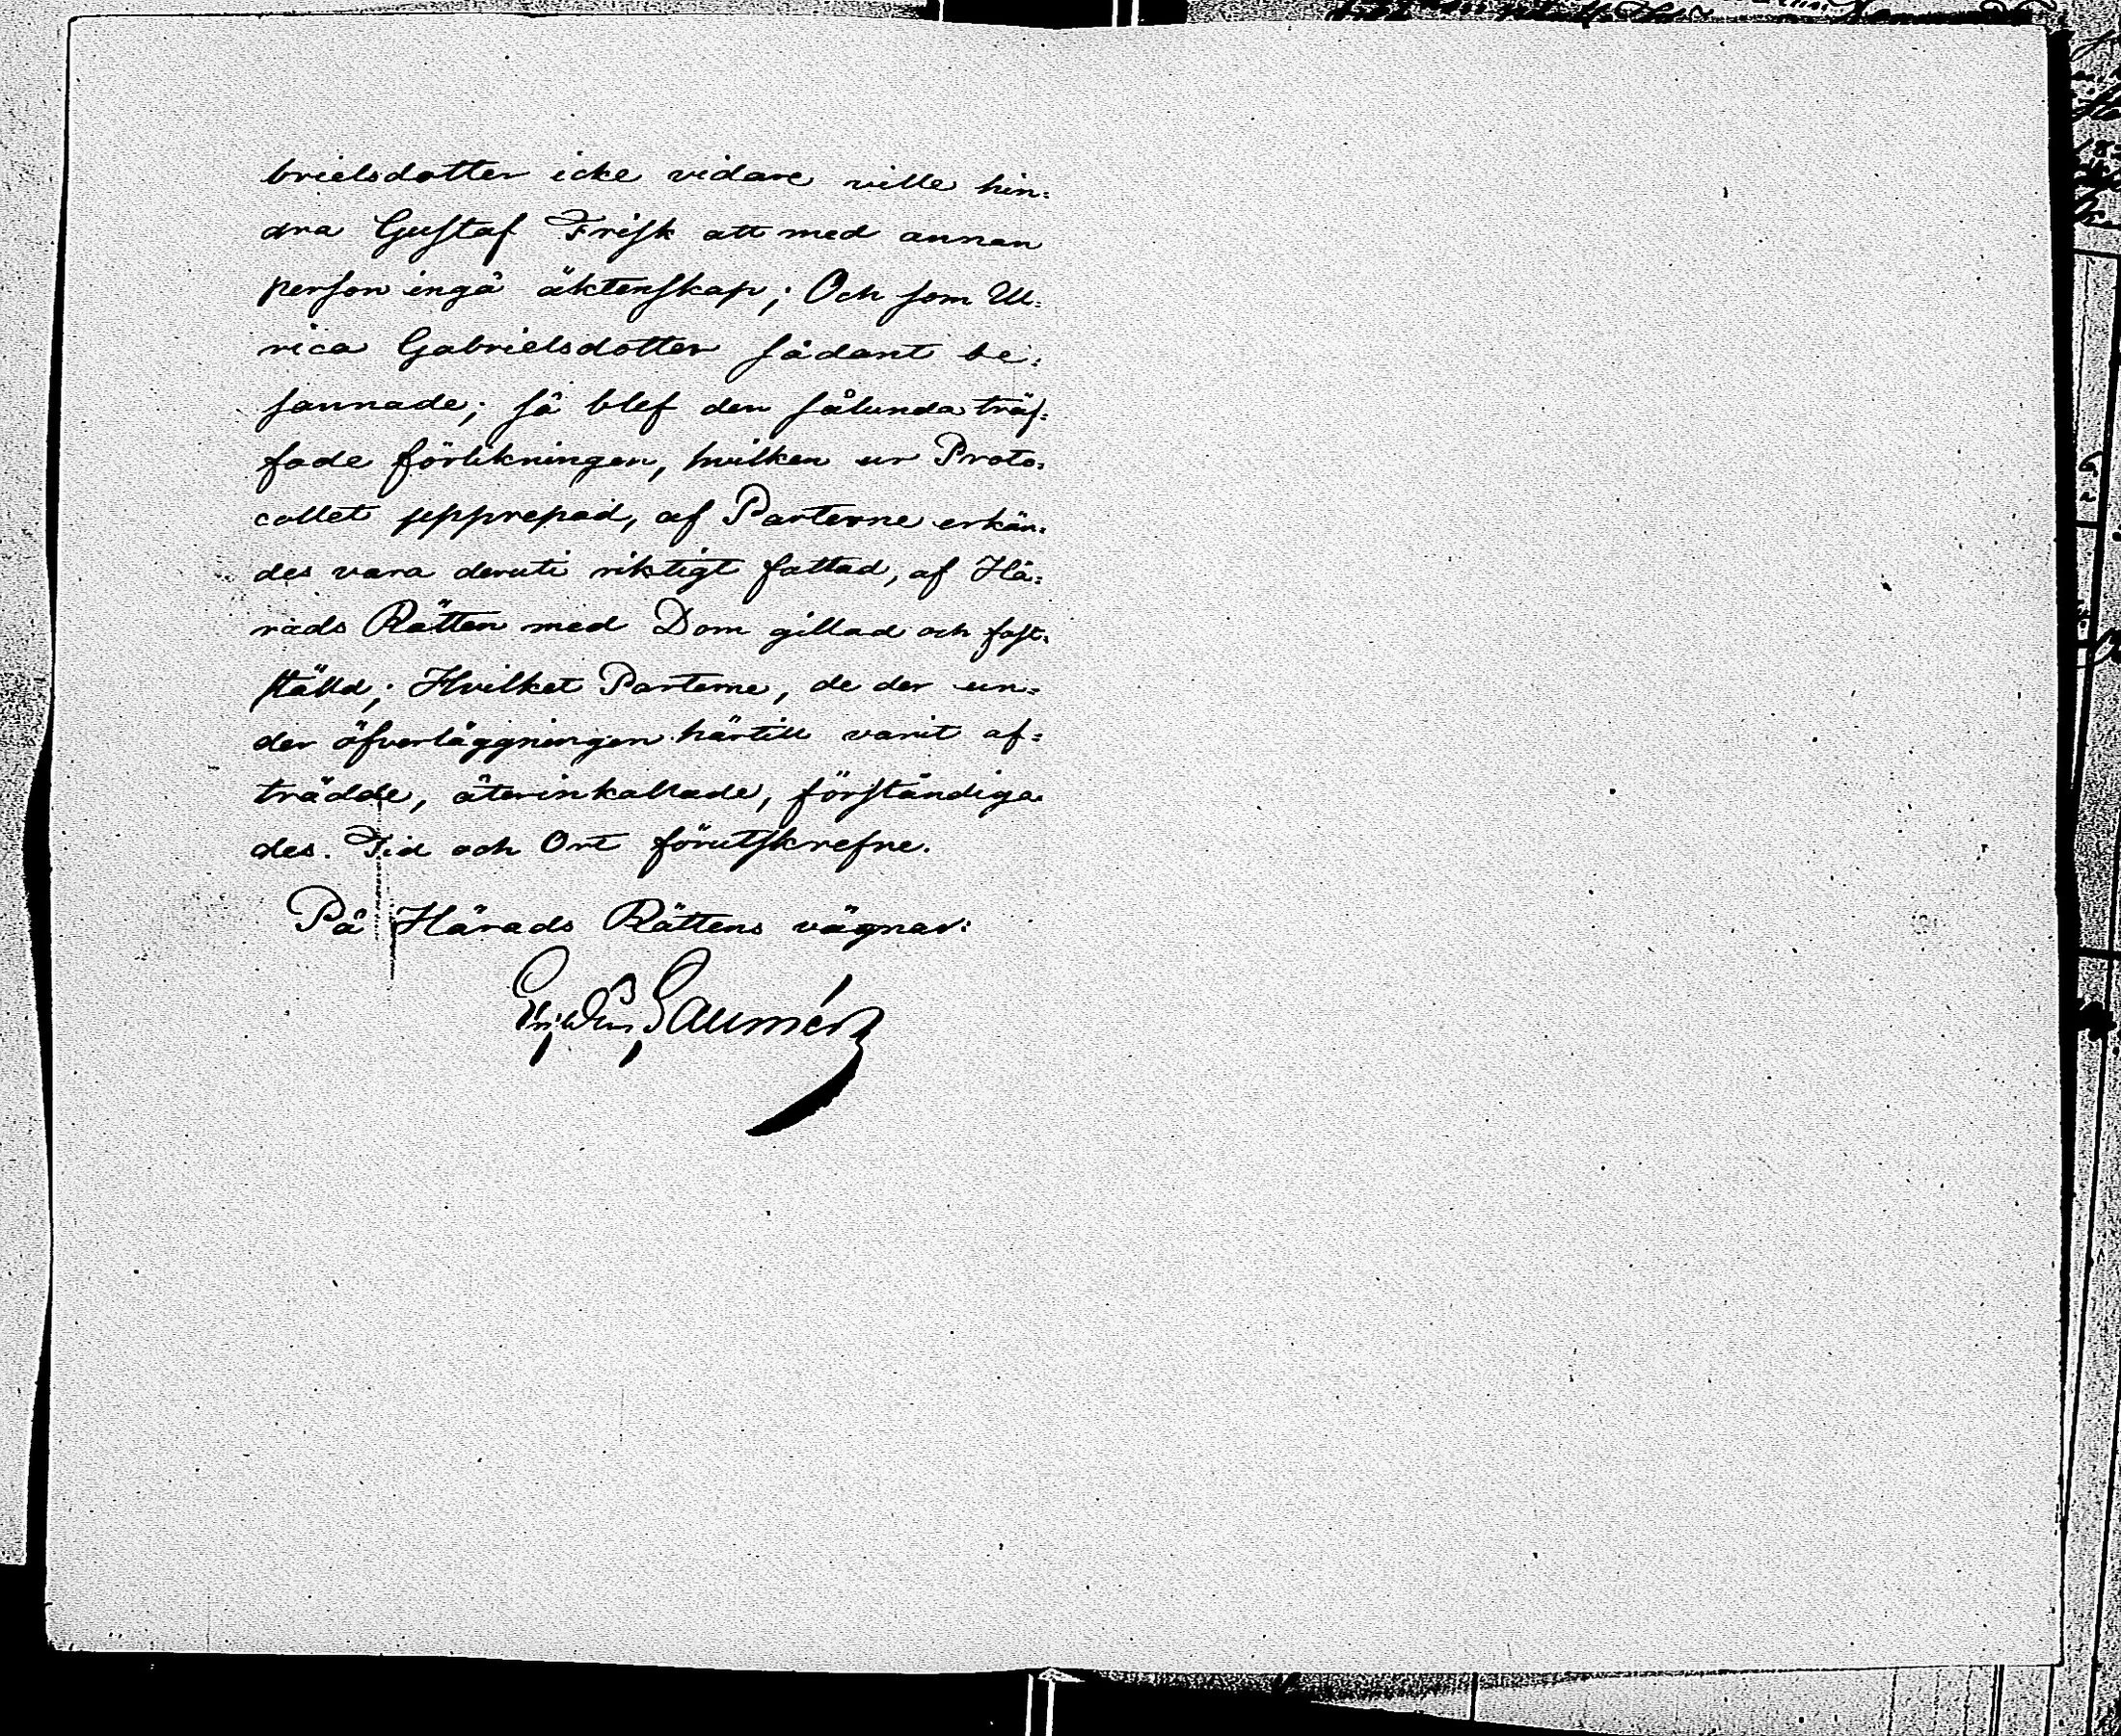 brielsdotter icke vidare ville hin=
dra Gustaf Frisk att med annan
person ingå äktenskap; Och som Ul=
rica Gabrielsdotter sådant be=
sannade; så blef den sålunda träf=
fade förlikningen, hvilken ur Proto=
collet upprepad, af Parterne erkän=
des vara deruti riktigt fattad, af Hä=
rads Rätten med Dom gillad och fast=
ställd; Hvilket Parterne, de der un=
der öfverläggningen härtill varit af=
trädde, återinkallade, förständiga=
des. Tid och Ort förutskrefne.
På Härads Rättens vägnar: